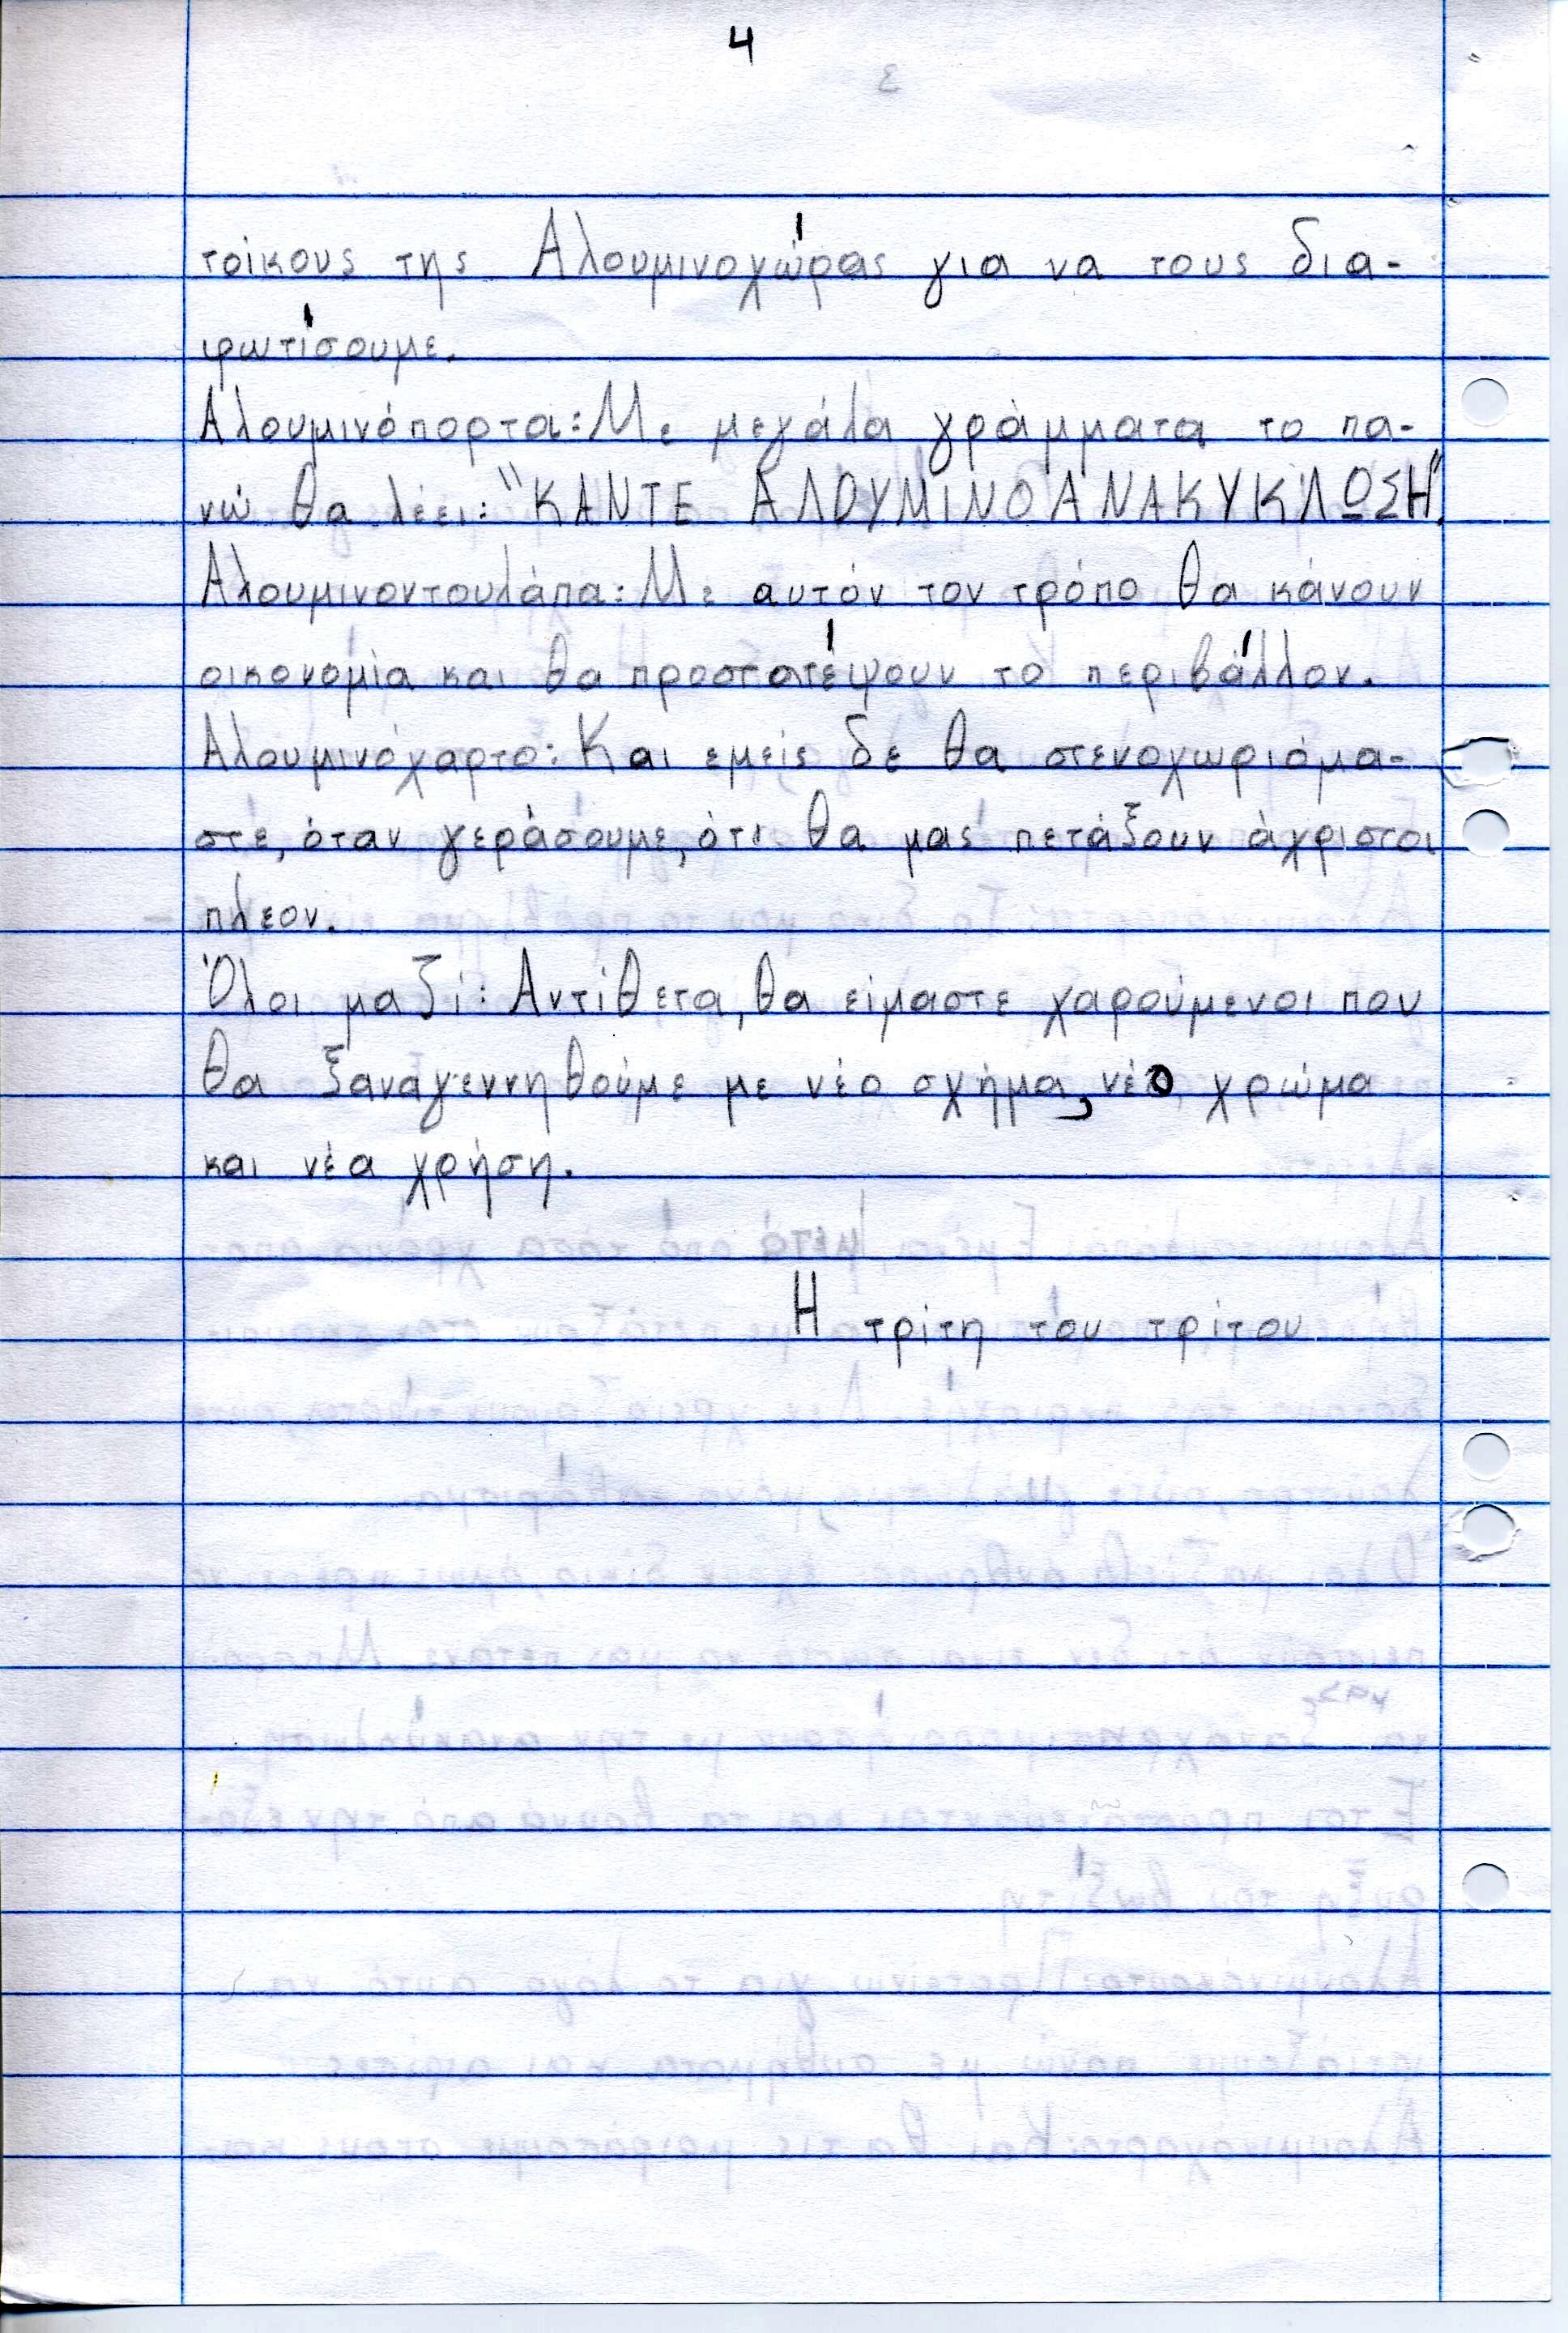 4
τοίκους της Αλουμινοχώρας για να τους δια-
φωτίσουμε.
Αλουμινόπορτα: Με μεγάλα γράμματα το πα-
νώ θα λέει: "ΚΑΝΤΕ ΑΛΟΥΜΙΝΟΑΝΑΚΥΚΛΩΣΗ".
Αλουμινοντουλάπα: Με αυτόν τον τρόπο θα κάνουν
οικονομία και θα προστατέψουν το περιβάλλον.
Αλουμινόχαρτο: Και εμείς δε θα στενοχωριόμα-
στε, όταν γεράσουμε, ότι θα μας πετάξουν άχρηστοι
πλεον.
Όλοι μαζί: Αντίθετα, θα είμαστε χαρούμενοι που
θα ξαναγεννηθούμε με νέο σχήμα, νέο χρώμα
και νέα χρήση.
Η τρίτη του τρίτου